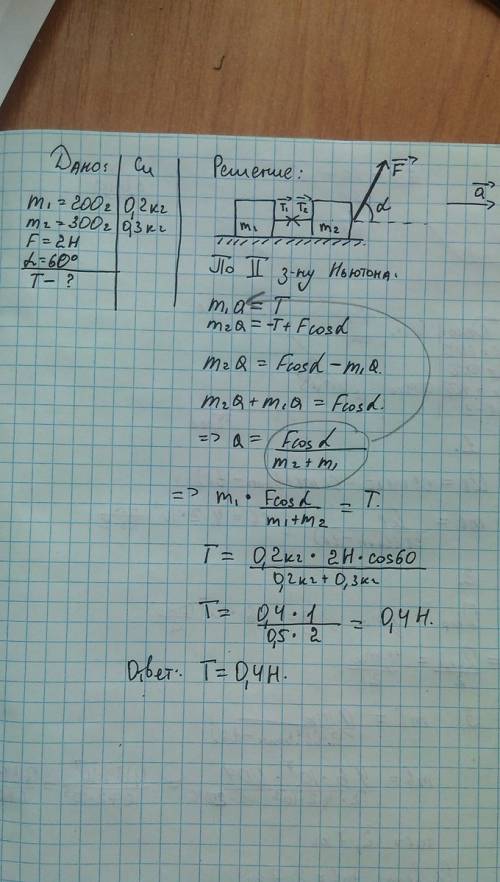 Дано:
Си
m₁ = 200г
0,2кг
m₂ = 300г
0,3кг
F = 2Н
α = 60°
T - ?
Решение:
m₁
T₁
T₂
m₂
F
α
a
По II з-ну Ньютона:
m₁a = T
m₂a = -T + Fcosα
m₂a = Fcosα - m₁a.
m₂a + m₁a = Fcosα.
=> a = Fcosα / (m₂ + m₁)
=> m₁ · Fcosα / (m₁ + m₂) = T.
T = 0,2кг · 2Н · cos60 / (0,2кг + 0,3кг)
T = 0,4 · 1 / (0,5 · 2) = 0,4Н.
Ответ: T = 0,4Н.